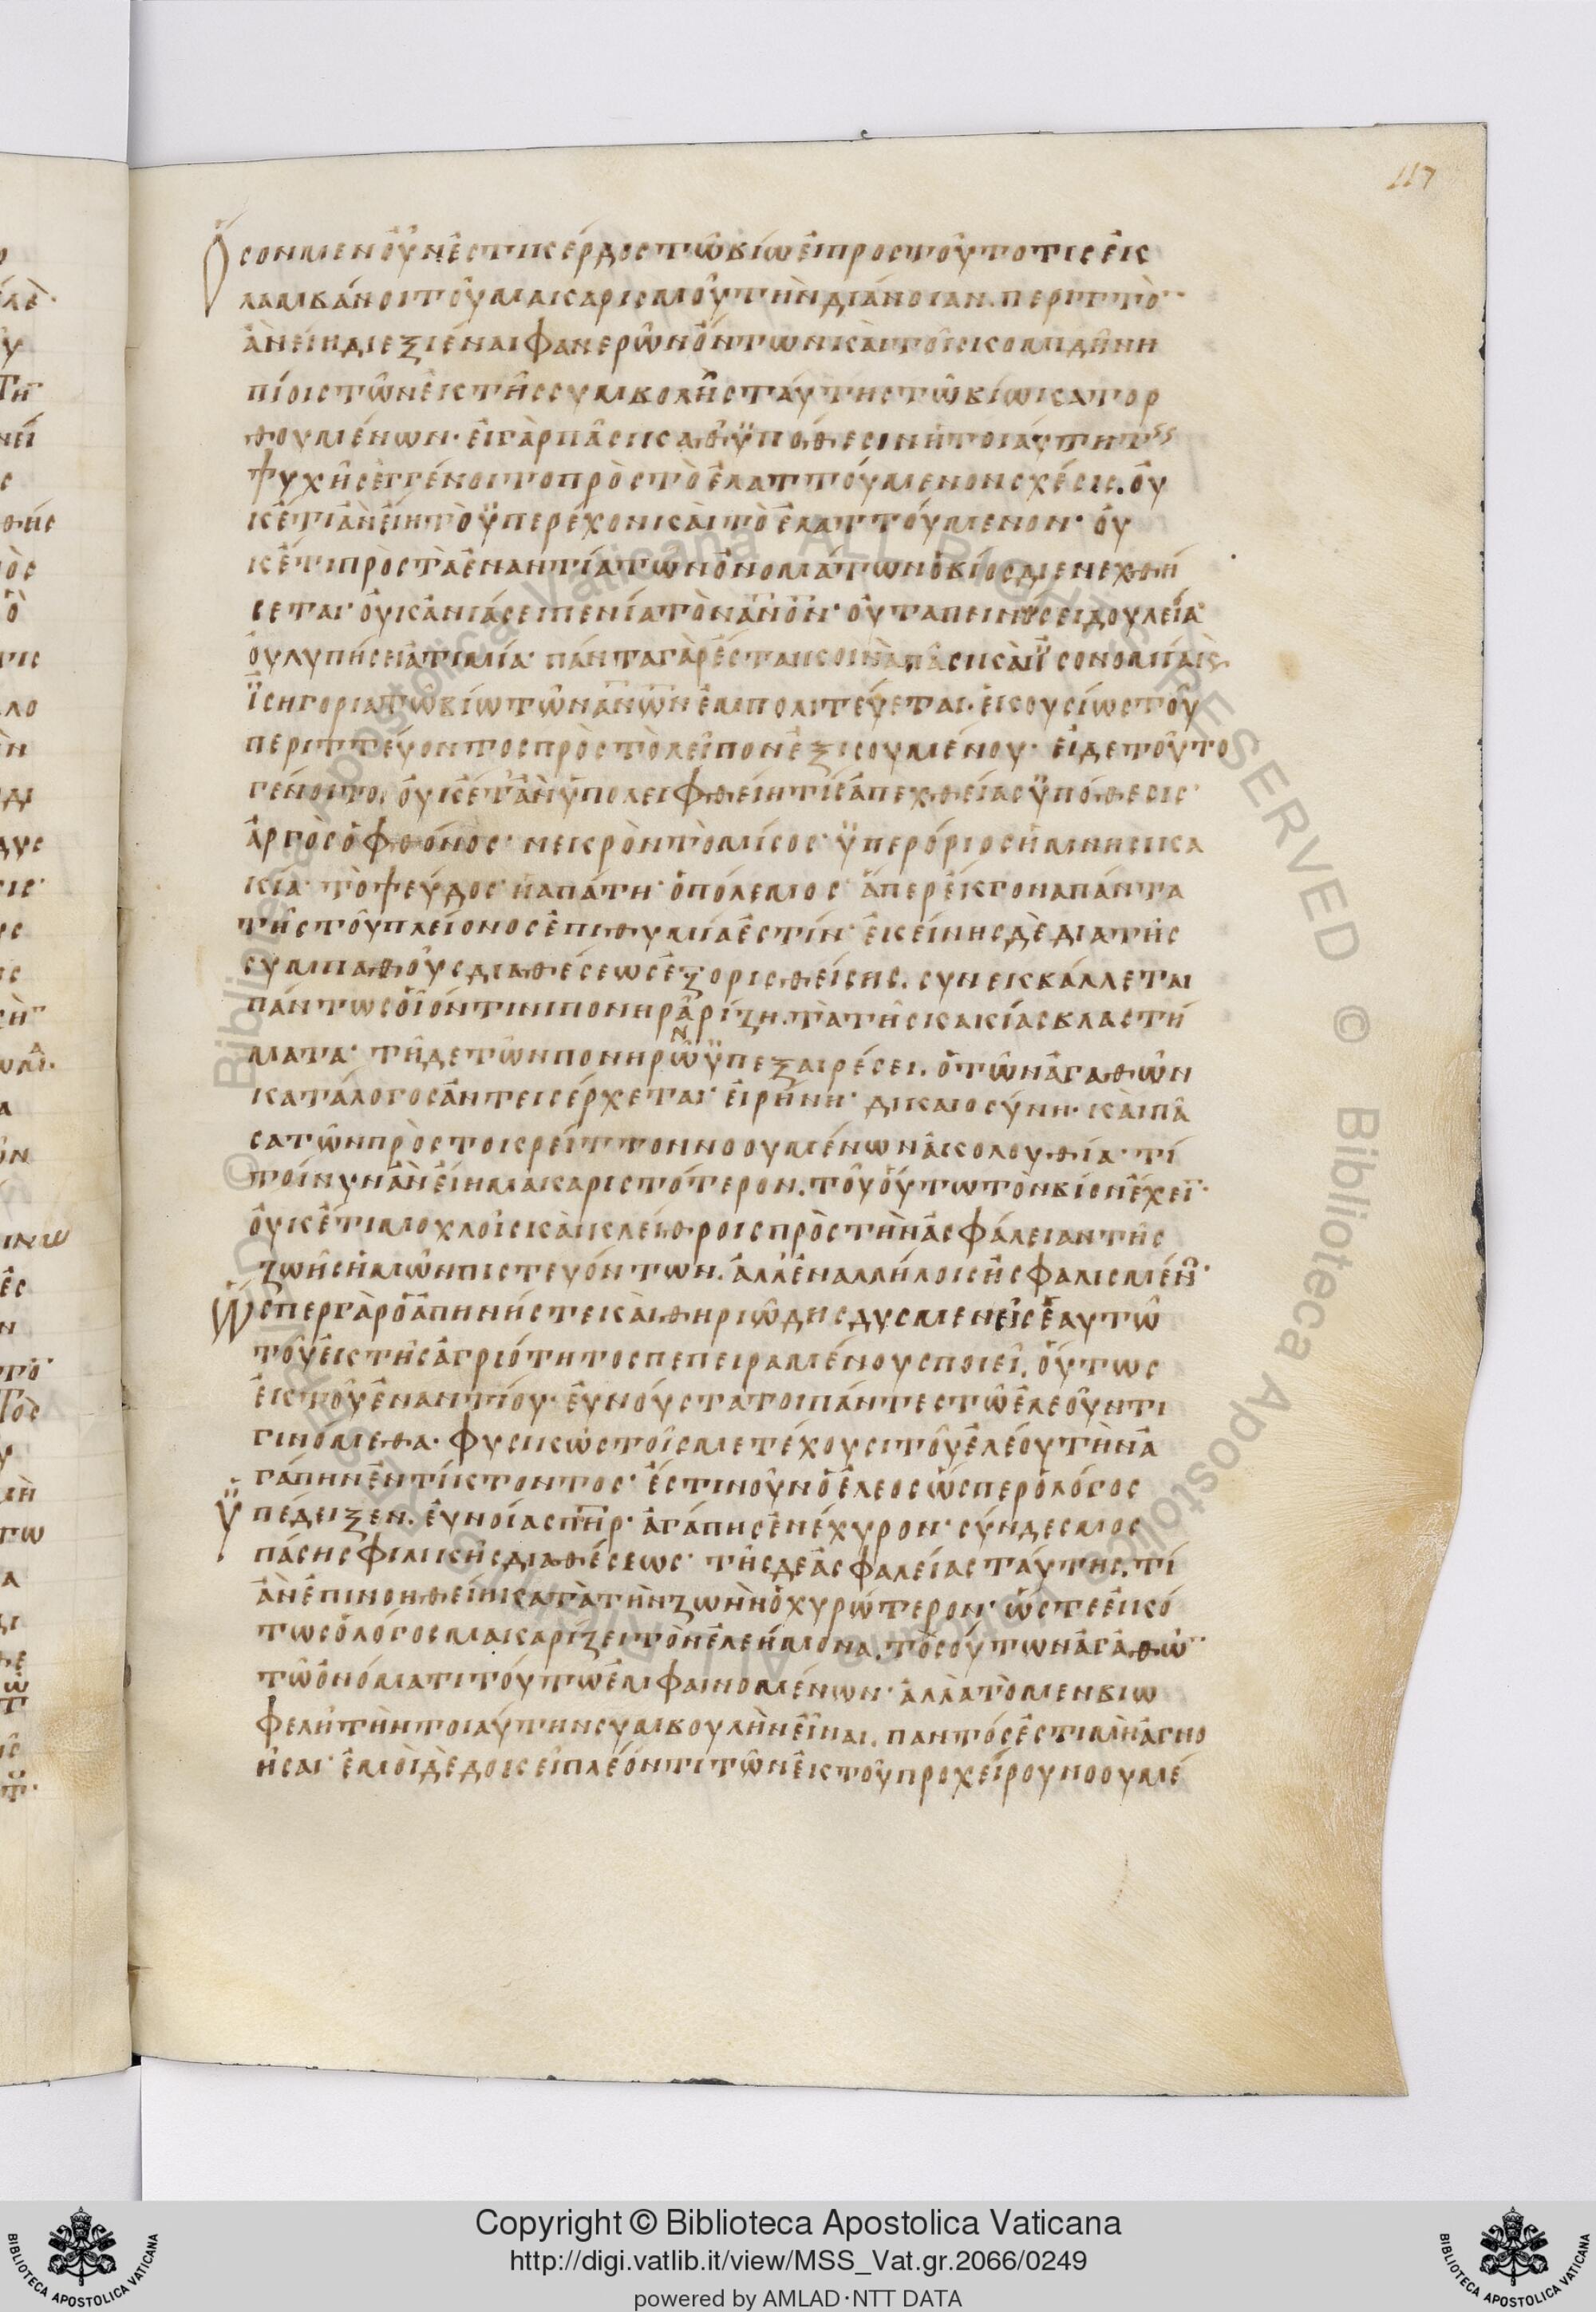 117
Ὅσον μὲν οὖν ἐστι κέρδος τῷ βίῳ εἰ πρὸς τοῦτό τις ἐκ
λαμβάνοι τοῦ μακαρισμοῦ τὴν διάνοιαν. περιττὸ
ἂν εἴη διεξιέναι φανερῶν ὄντων καὶ τοῖς κομιδῆ νη
πίοις τῶν ἐκ τῆς συμβολῆς ταύτης τῶ βίω κατορ
θουμένων· εἰ γὰρ πᾶσι καθ' ὑπόθεσιν ἡ τοιαύτη τῆς
ψυχῆς ἐγγένοιτο πρὸς τὸ ἐλαττούμενον σχέσις. οὐ
κέτι ἂν εἴη τὸ ὑπερέχον καὶ τὸ ἐλαττούμενον· οὐ
κέτι πρὸς τὰ ἐναντία τῶν ὀνομάτων ὁ βίος διενεχθή
σεται· οὐκ ἀνιάσει πενία τὸν ἄνον· οὐ ταπεινώσει δουλεία·
οὐ λυπήσει ἀτιμία· πάντα γὰρ ἔσται κοινὰ πᾶσι καὶ ἰσονομία κς
ἰσηγορία τῶ βίω τῶν ἀνων ἐμπολιτεύεται. ἑκουσίως τοῦ
περιττεύοντος πρὸς τὸ λεῖπον ἐξισουμένου· εἰ δὲ τοῦτο
γένοιτο. οὐκέτ' ἂν ὑπολειφθείη τις ἀπεχθείας ὑπόθεσις·
ἀργὸς ὁ φθόνος· νεκρὸν τὸ μίσος· ὑπερόριος ἡ μνησικα
κία· τὸ ψεύδος· ἡ ἀπάτη· ὁ πόλεμος· ἅπερ ἔκγονα πάντα
τῆς τοῦ πλείονος ἐπιθυμία ἐστίν· ἐκείνης δὲ διὰ τῆς
συμπαθοῦς διαθέσεως ἐξορισθείσης. συνεκβάλλεται
πάντως οἷόν τινι πονηρᾶ ρίζη. τὰ τῆς κακίας βλαστή
ματα· τῆ δὲ τῶν πονηρῶν ὑπεξαιρέσει. ὁ τῶν ἀγαθῶν
κατάλογος ἀντεισέρχεται· εἰρήνη· δικαιοσύνη· καὶ πᾶ
σα τῶν πρὸς τὸ κρείττον νοουμένων ἀκολουθία· τί
τοίνυν ἂν εἴη μακαριστότερον. τοῦ οὕτω τὸν βίον ἔχει·
οὐκέτι μοχλοῖς καὶ κλείθροις πρὸς τὴν ἀσφάλειαν τῆς
ζωῆς ἡμῶν πιστευόντων. ἀλλ' ἐν ἀλλήλοις ἠσφαλισμένω·
Ὥσπερ γὰρ ὁ ἀπηνής τε καὶ θηριώδης δυσμενεῖς ἑαυτῶ
τοὺς ἐκ τῆς ἀγριότητος πεπειραμένους ποιεῖ. οὕτως
ἐκ τοῦ ἐναντίου· εὐνούστατοι πάντες τῶ ἐλεοῦντι
γινόμεθα. φυσικῶς τοῖς μετέχουσι τοῦ ἐλέου τὴν ἀ
γάπην ἐντίκτοντος· ἔστιν οὖν ὁ ἔλεος ὥσπερ ὁ λόγος
ὑπέδειξεν. εὐνοίας πηρ· ἀγάπης ἐνέχυρον· σύνδεσμος
πάσης φιλικῆς διαθέσεως· τῆς δὲ ἀσφαλείας ταύτης. τί
ἂν ἐπινοηθείη κατὰ τὴν ζωὴν ὀχυρώτερον· ὥστε εἰκό
τως ὁ λόγος μακαρίζει τὸν ἐλεήμονα. τοσούτων ἀγαθῶ
τῶ ὀνόματι τούτω ἐμφαινομένων· ἀλλὰ τὸ μὲν βιω
φελῆ τὴν τοιαύτην συμβουλὴν εἶναι. παντός ἐστι μὴ ἀγνο
ῆσαι· ἐμοὶ δὲ δοκεῖ πλέον τι τῶν ἐκ τοῦ προχείρου νοουμέ
Copyright © Biblioteca Apostolica Vaticana
http://digi.vatlib.it/view/MSS_Vat.gr.2066/0249
powered by AMLAD·NTT DATA
BIBLIOTECA APOSTOLICA VATICANA
BIBLIOTECA APOSTOLICA VATICANA